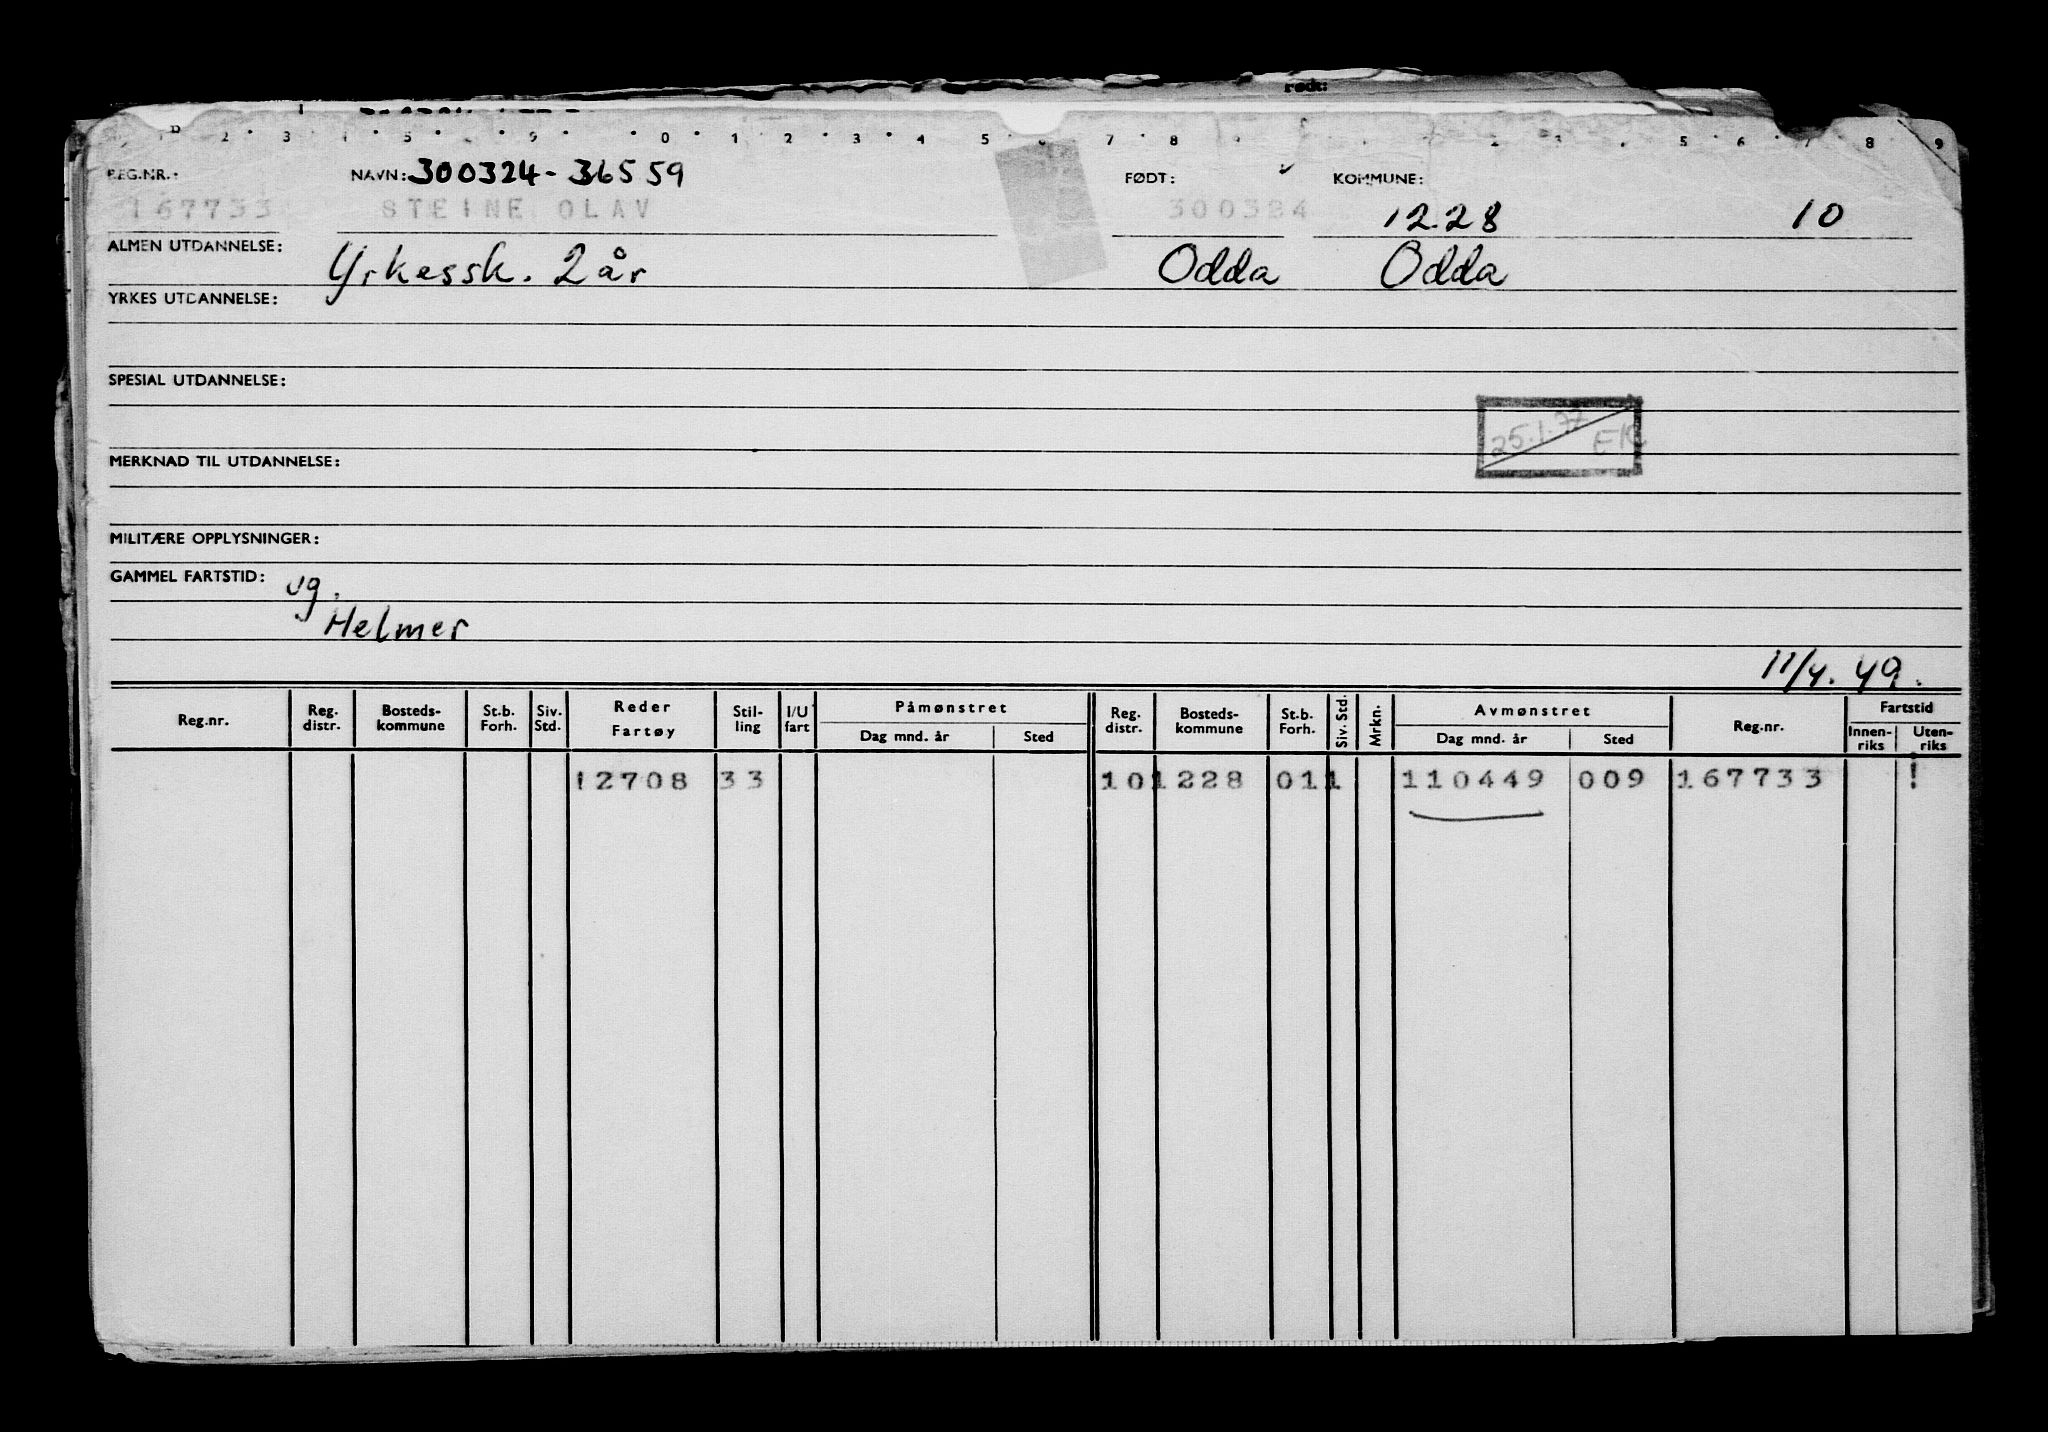 født:
REG.NR.: NAVN: 300324-36559 FØDT: KOMMUNE:
167733 STEINE OLAV 300324 12.28 10
ALMEN UTDANNELSE: Yrkessk. 2 år Odda Odda
YRKES UTDANNELSE:
SPESIAL UTDANNELSE:
25.1.77
MERKNAD TIL UTDANNELSE:
MILITÆRE OPPLYSNINGER:
GAMMEL FARTSTID: ug.
Helmer
11/4.49.
Reg.nr. Reg. distr. Bosteds-kommune St.b. Forh. Siv. Std. Reder Fartøy Stil-ling I/U fart Påmønstret Dag mnd. år Sted Reg. distr. Bosteds-kommune St.b. Forh. Siv. Std. Mrkn. Avmønstret Dag mnd. år Sted Reg.nr. Fartstid Innen-riks Uten-riks
12708 33 10 1228 01 1 110449 009 167733